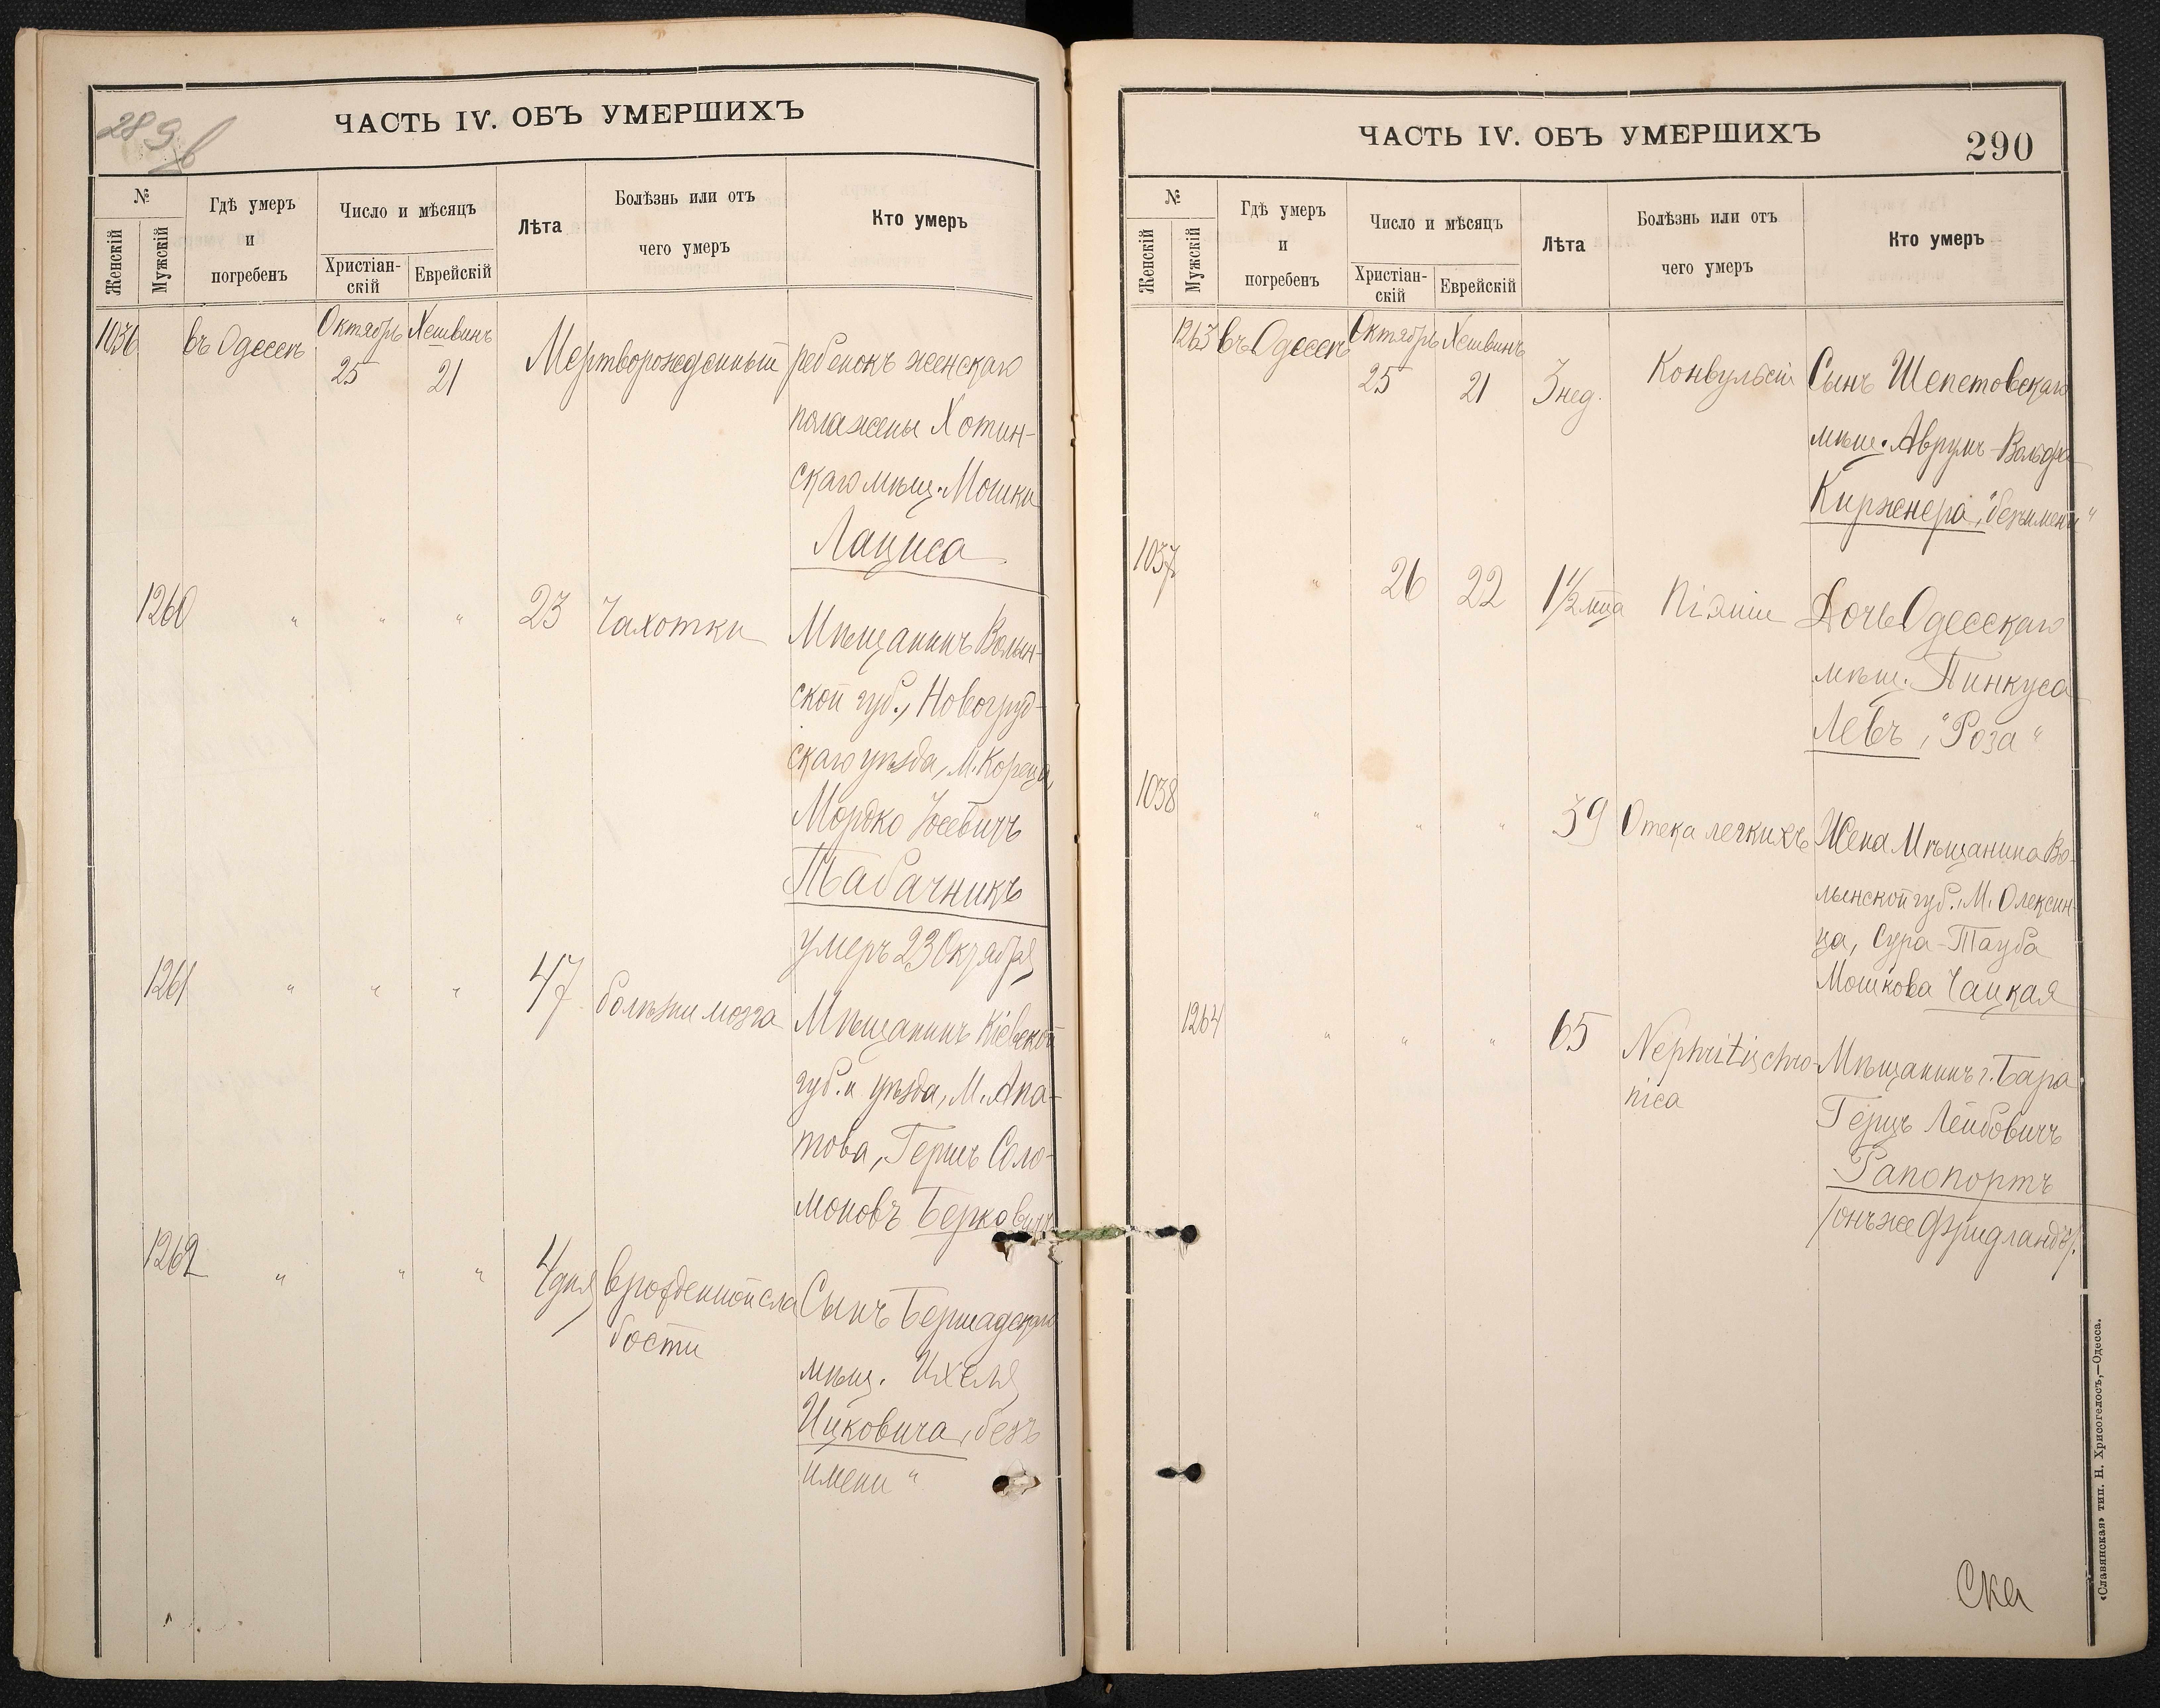 289 б
ЧАСТЬ IV. ОБЪ УМЕРШИХЪ
№
Женскій
Мужскій
Гдѣ умеръ
и
погребенъ
Число и мѣсяцъ
Христіан-
скій
Еврейскій
Лѣта
Болѣзнь или отъ
чего умеръ
Кто умеръ
1036 въ Одессѣ Октябрь 25 Хешвинъ 21 Мертворожденный ребенокъ женскаго
пола жены Хотин-
скаго мѣщ. Мошки
Лациса
1260 " " " 23 Чахотки Мѣщанинъ Волын-
ской губ., Новогруд-
скаго уѣзда, М. Кореца,
Мордко Іосевичъ
Табачникъ
умеръ 23 Октября
1261 " " " 47 болѣзни мозга Мѣщанинъ Кіевской
губ. и уѣзда, М. Ана-
това, Гершъ Соло-
моновъ Берковичъ
1262 " " " 4 дня врожденной сла
бости
Сынъ Бершадскаго
мѣщ. Ихеля
Ицковича, безъ
имени "
ЧАСТЬ IV. ОБЪ УМЕРШИХЪ
290
№
Женскій
Мужскій
Гдѣ умеръ
и
погребенъ
Число и мѣсяцъ
Христіан-
скій
Еврейскій
Лѣта
Болѣзнь или отъ
чего умеръ
Кто умеръ
1263 въ Одессѣ Октябрь 25 Хешвинъ 21 3 нед. Конвульсіи Сынъ Шепетовскаго
мѣщ. Аврумъ-Вольфа
Кирженера, "безъ имени"
1037 " 26 22 1 1/2 мца Піэміи Дочь Одесскаго
мѣщ. Пинкуса
Левъ, "Роза"
1038 " " " 39 Отека легкихъ Жена Мѣщанина Во-
лынской губ., М. Олексин-
ца, Сура-Тауба
Мошкова Чацкая
1264 " " " 65 Nephritis chro-
nica
Мѣщанинъ г. Бара
Герцъ Лейбовичъ
Рапопортъ
/онъ же Фридландъ/.
Ска
«Славянская» тип. Н. Хрисогелосъ,—Одесса.